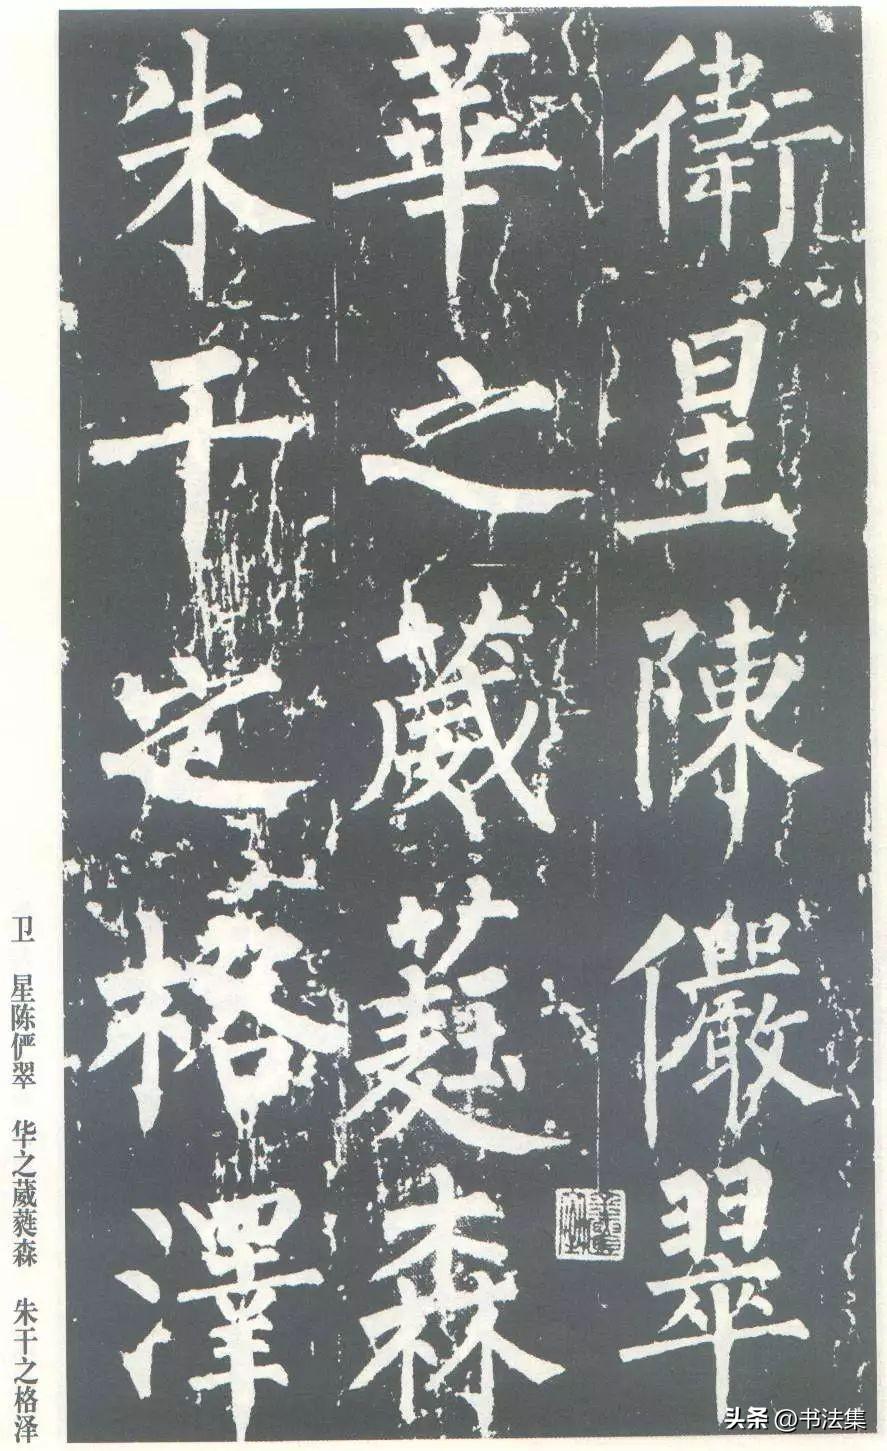 衛星陳儼翠
華之葳蕤森
朱干之格澤
卫 星陈俨翠 华之葳蕤森 朱干之格泽
头条 @书法集